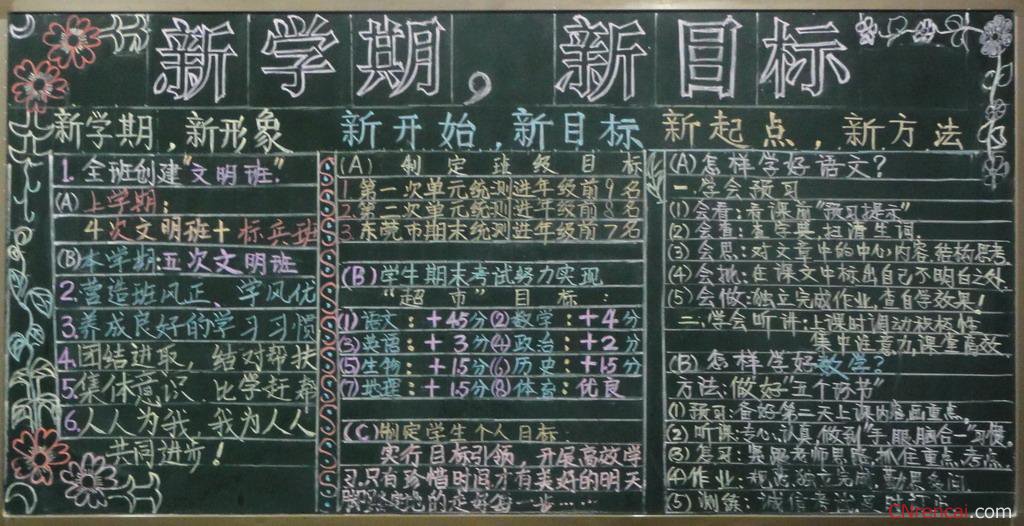 新学期，新目标
新学期，新形象
1. 全班创建"文明班"
(A) 上学期：
4次文明班＋标兵班
(B)本学期:五次文明班
2.营造班风正、学风优
3.养成良好的学习习惯
4.团结进取，结对帮扶
5.集体意识 比学赶帮
6.人人为我，我为人人
共同进步！
新开始，新目标
(A) 制定班级目标
1.第一次单元统测进年级前9名
2.第二次单元统测进年级前8名
3.东莞市期末统测进年级前7名
(B)学生期末考试努力实现
"超市"目标：
(1)语文：+4.5分(2)数学：+4分
(3)英语：+3分(4)政治：+2分
(5)生物：+1.5分(6)历史：+1.5分
(7)地理：+1.5分(8)体育：优良
(C)制定学生个人目标
实行目标引领 开展高效学
习.只有珍惜时间才有美好的明天
的走好每一步……
新起点，新方法
(A)怎样学好语文?
一.学会预习
(1)会看:看课前"预习提示"
(2)会查:查字典,扫清生词.
(3)会思:对文章中的中心内容.结构思考
(4)会批:在课文中标出自己不明白之处.
(5)会做:独立完成作业,查自学效果!
二.学会听讲:上课时调动积极性
集中注意力,课堂高效
(B)怎样学好数学?
方法:做好"五个环节"
(1)预习:备好第二天上课内容画重点.
(2)听课:专心,认真,做到"手.眼.脑合一"习惯.
(3)复习:紧跟老师思路,抓住重点,考点.
(4)作业:规范独立完成,勤思多问.
(5)训练:诚信考试
CNrencai.com